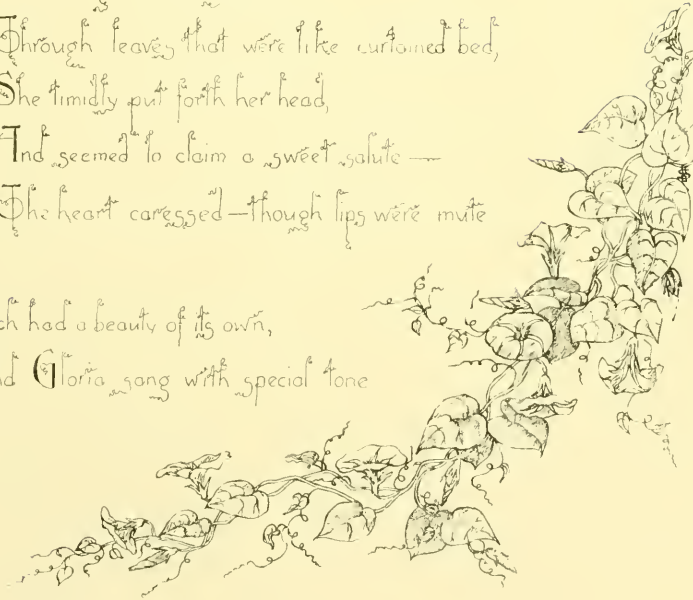 Through leaves that were like curtained bed,
She timidly put forth her head,
And seemed to claim a sweet salute —
The heart caressed—though lips were mute
ch had a beauty of its own,
d Gloria sang with special tone